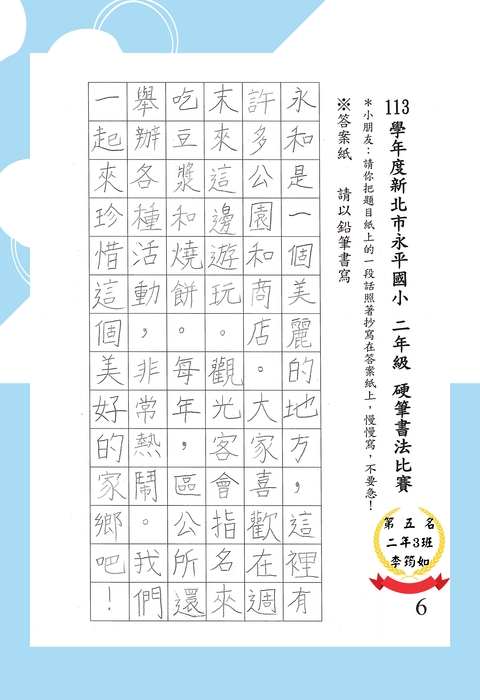 113學年度新北市永平國小 二年級 硬筆書法比賽
＊小朋友：請你把題目紙上的一段話照著抄寫在答案紙上，慢慢寫，不要急！
※答案紙 請以鉛筆書寫
永和是一個美麗的地方，這裡有
許多公園和商店。大家喜歡在週
末來這邊遊玩。觀光客會指名來
吃豆漿和燒餅。每年，區公所還
舉辦各種活動，非常熱鬧。我們
一起來珍惜這個美好的家鄉吧！
第五名
二年3班
李筠如
6